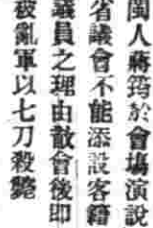 閩人蔣筠於會塲演說
省議會不能添設客籍
議員之理由散會後即
被亂軍以七刀殺斃